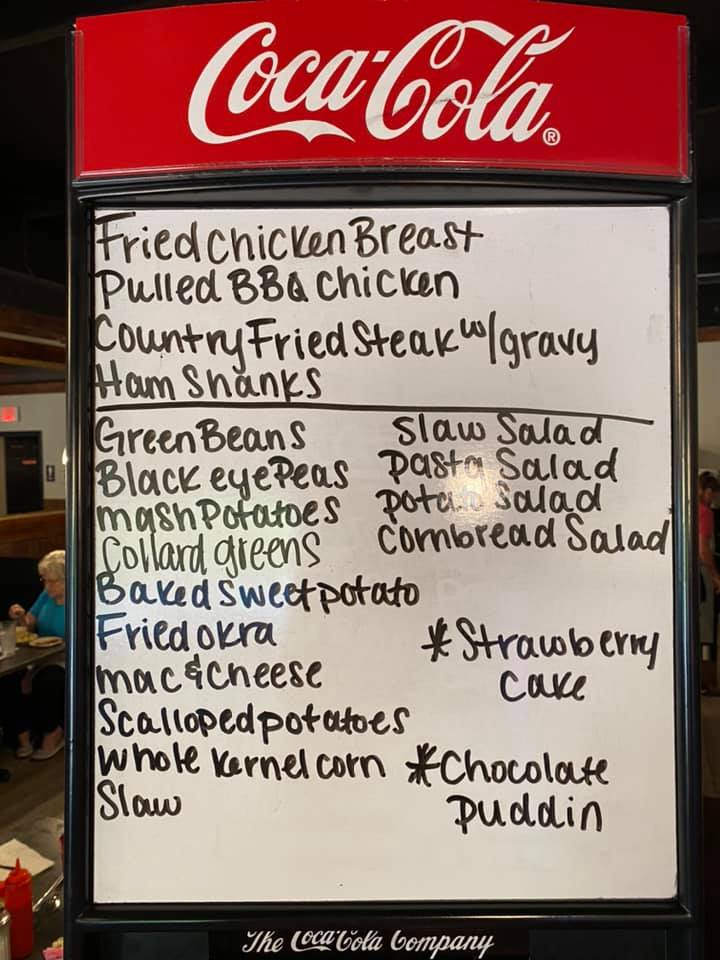 Coca-Cola®
Fried chicken Breast
Pulled BBQ chicken
Country Fried Steak w/gravy
Ham Shanks
Green Beans
Black eye Peas
mash Potatoes
Collard greens
Baked sweet potato
Fried okra
mac & cheese
Scalloped potatoes
whole kernel corn
Slaw
Slaw Salad
pasta Salad
potato Salad
Cornbread Salad
*Strawberry
Cake
*Chocolate
puddin
The Coca-Cola Company